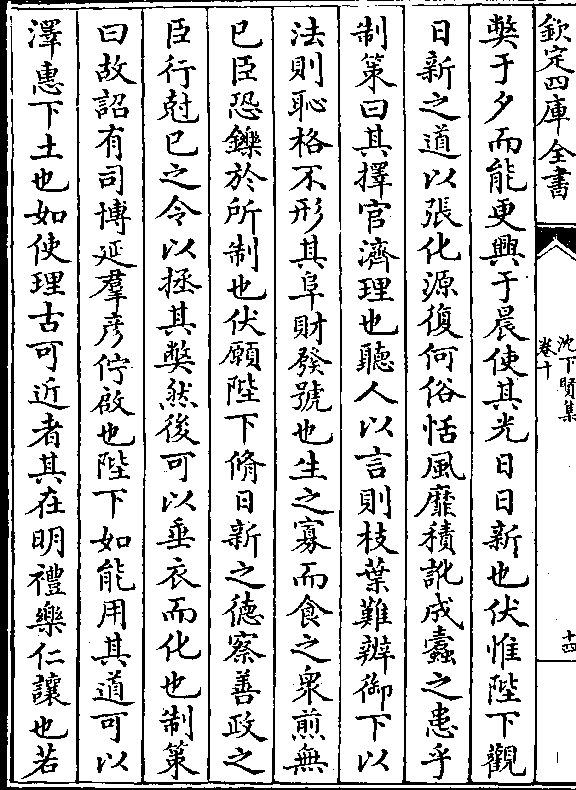 欽定四庫全書
沈下賢集
卷十
十四
獘于夕而能更興于晨使其光日日新也伏惟陛下觀
日新之道以張化源復何俗恬風靡積訛成蠹之患乎
制策曰其擇官濟理也聽人以言則枝葉難辨御下以
法則恥格不形其阜財發號也生之寡而食之衆煎無
已臣恐鑠於所制也伏願陛下脩日新之德察善政之
臣行尅已之令以拯其獘然後可以垂衣而化也制策
曰故詔有司博延羣彦佇啟也陛下如能用其道可以
澤惠下土也如使理古可近者其在明禮樂仁讓也若